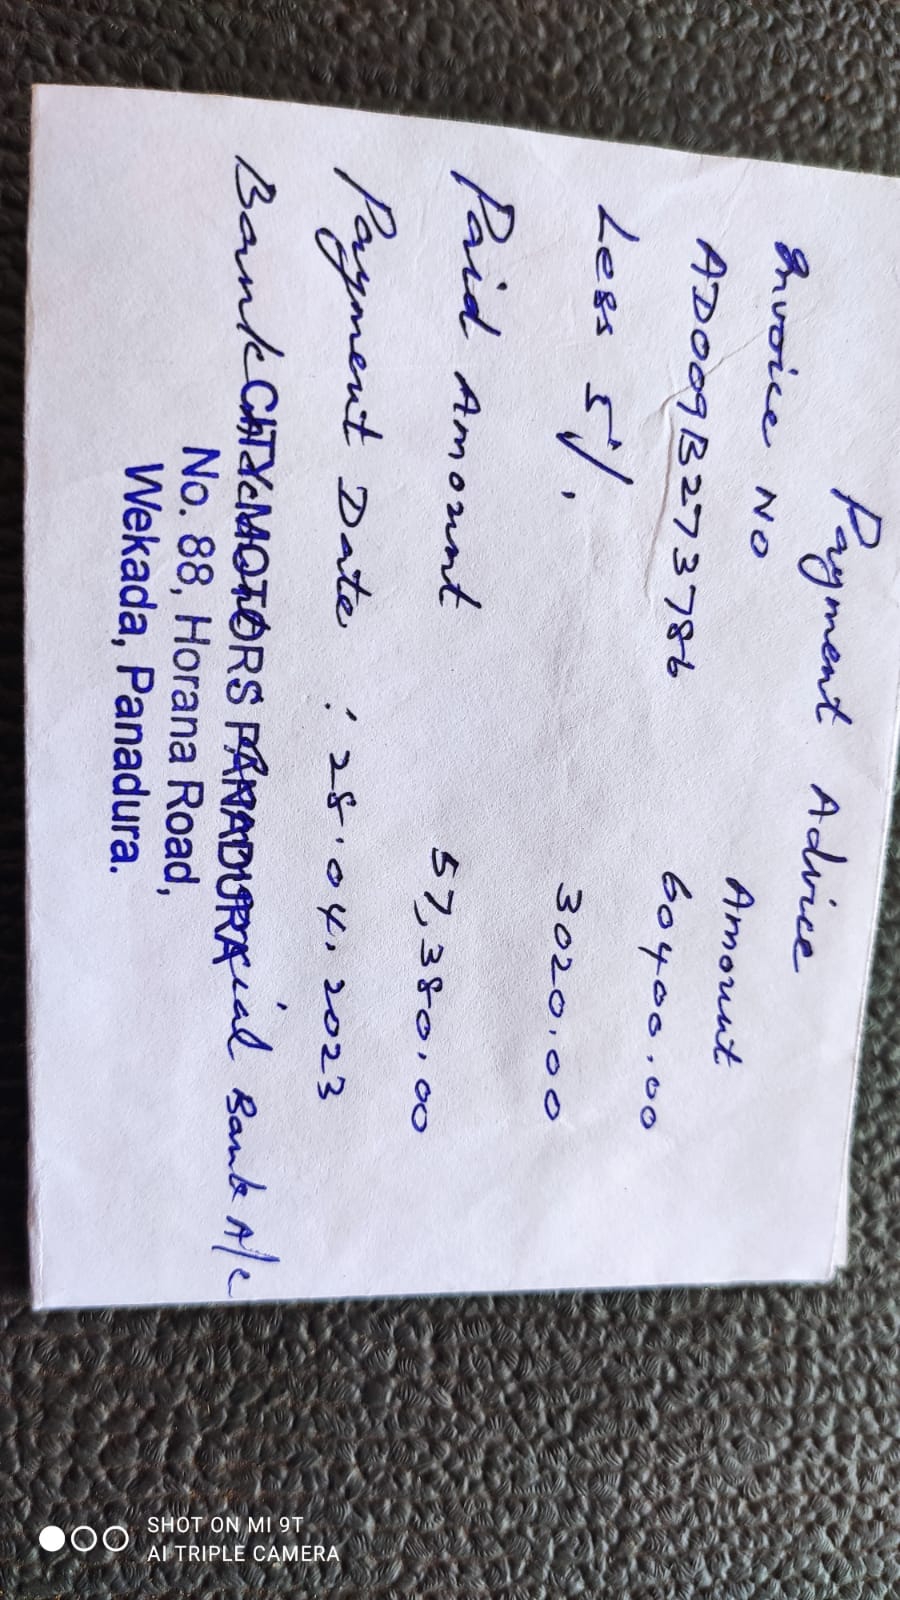 Payment Advice
Invoice No Amount
AD009B273786 60400.00
Less 5% 3020.00
Paid Amount 57,380.00
Payment Date : 28.04.2023
Bank Bank A/c
CITY MOTORS PANADURA
No. 88, Horana Road,
Wekada, Panadura.
SHOT ON MI 9T
AI TRIPLE CAMERA